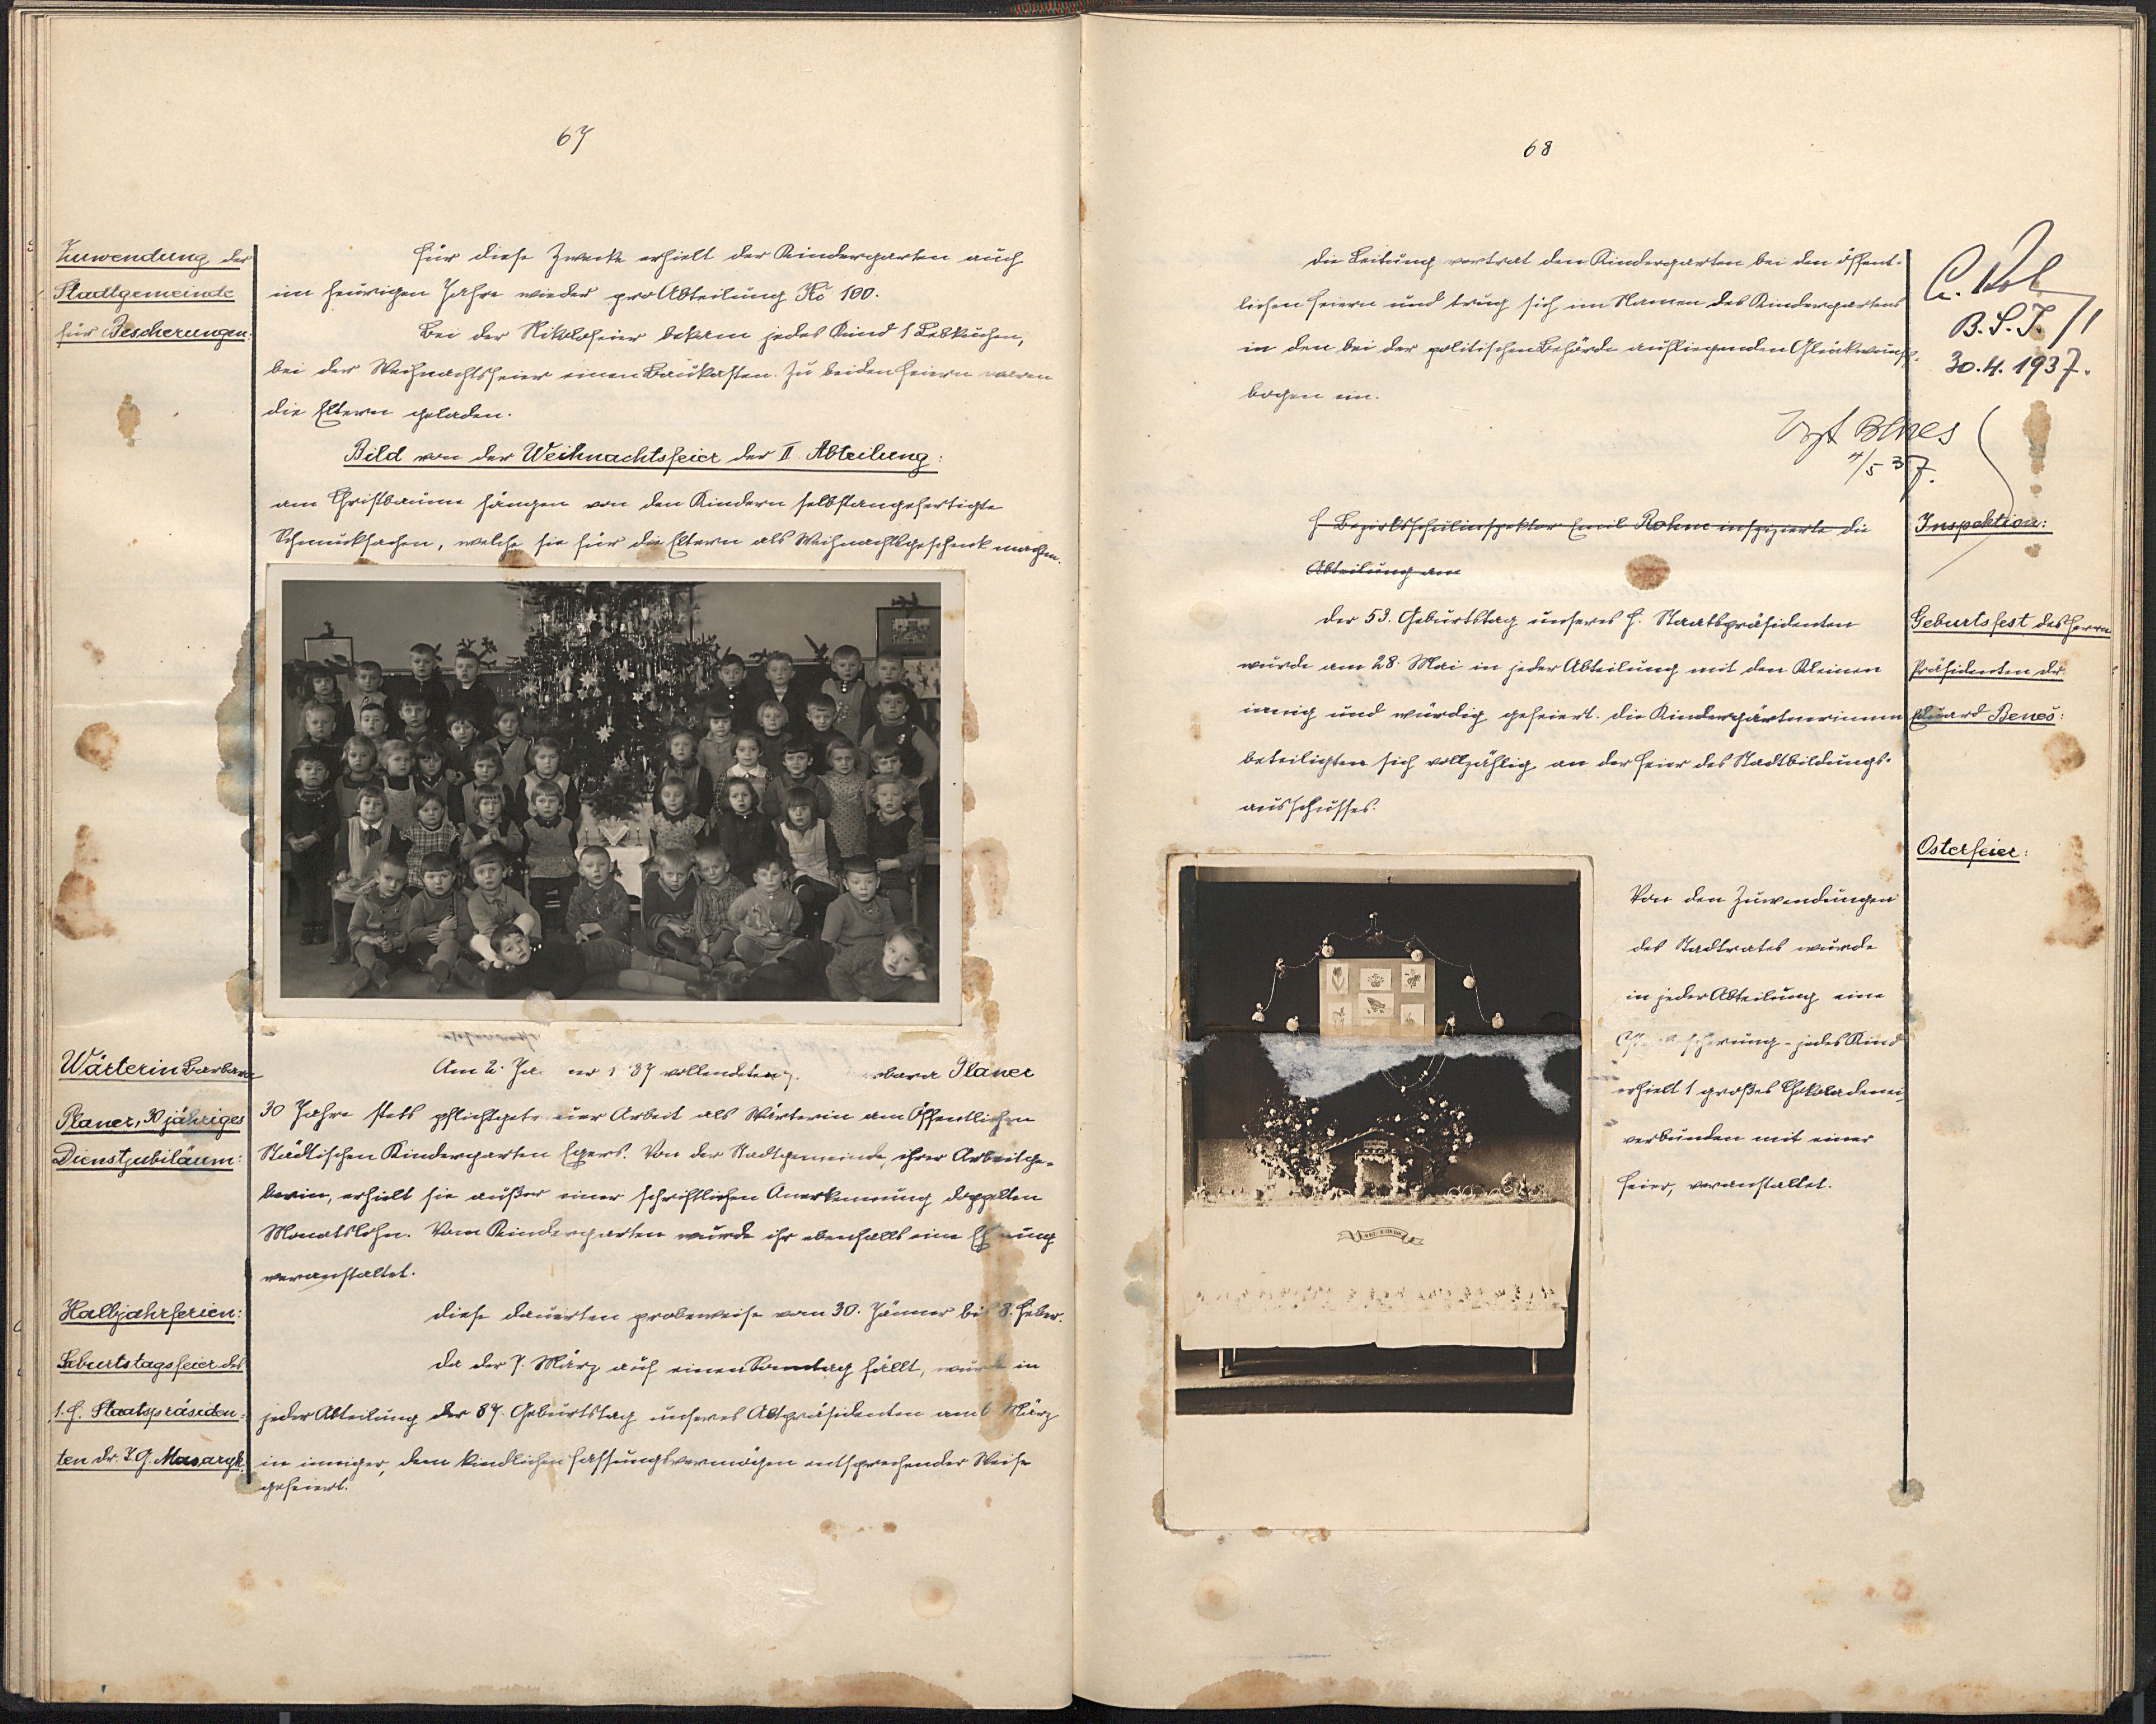 67
Zuwendung der
Stadtgemeinde
für Bescherungen:
Für diese Zwecke erhielt der Kindergarten auch
im heurigen Jahre wieder pro Abteilung Kč 100.
Bei der Nikolofeier bekam jedes Kind 1 Lebkuchen,
bei der Weihnachtsfeier einen Baukasten. Zu beiden Feiern waren
die Eltern geladen.
Bild von der Weihnachtsfeier der II. Abteilung:
am Christbaume hängen von den Kindern selbstangefertigte
Schmucksachen, welche sie für die Eltern als Weihnachtsgeschenk machen.
Wärterin Barbara
Planer, 30 jähriges
Dienstjubiläum:
Am 2. vollendete Planer
30 Jahre stets Arbeit als Wärterin am Öffentlichen
Städtischen Kindergarten Egers. Von der Stadtgemeinde, ihrer Arbeitge-
berin, erhielt sie außer einer schriftlichen Anerkennung doppelten
Monatslohn. Vom Kindergarten wurde ihr ebenfalls eine
veranstaltet.
Halbjahrferien:
Diese dauerten probeweise vom 30. Jänner bis 8. Feber.
Geburtstagsfeier des
1. H. Staatspräsiden-
ten Dr. T. G. Masaryk
Da der 7. März auf einen Sonntag fällt, wurde in
jeder Abteilung der 87. Geburtstag unseres Altpräsidenten am 6. März
in inniger, dem kindlichen Fassungsvermögen entsprechender Weise
gefeiert.
68
Die Leitung vertrat den Kindergarten bei den öffent-
lichen Feiern und trug sich im Namen des Kindergartens
in den bei der politischen Behörde aufliegenden Glückwunsch-
bogen ein.
B.S.I.
30.4.1937.
4/5 37.
H. Bezirksschulinspektor Emil Rohm inspizierte die
Abteilung am
Inspektion:
Der 53. Geburtstag unseres H. Staatspräsidenten
wurde am 28. Mai in jeder Abteilung mit den Kleinen
innig und würdig gefeiert. Die Kindergärtnerinnen
beteiligten sich vollzählig an der Feier des Stadtbildungs-
ausschusses.
Geburtsfest des Herrn
Präsidenten Dr.
Eduard Beneš:
Osterfeier:
Von den Zuwendungen
des Stadtrates wurde
in jeder Abteilung eine
- jedes Kind
erhielt 1 großes Schokoladenei,
verbunden mit einer
Feier, veranstaltet.